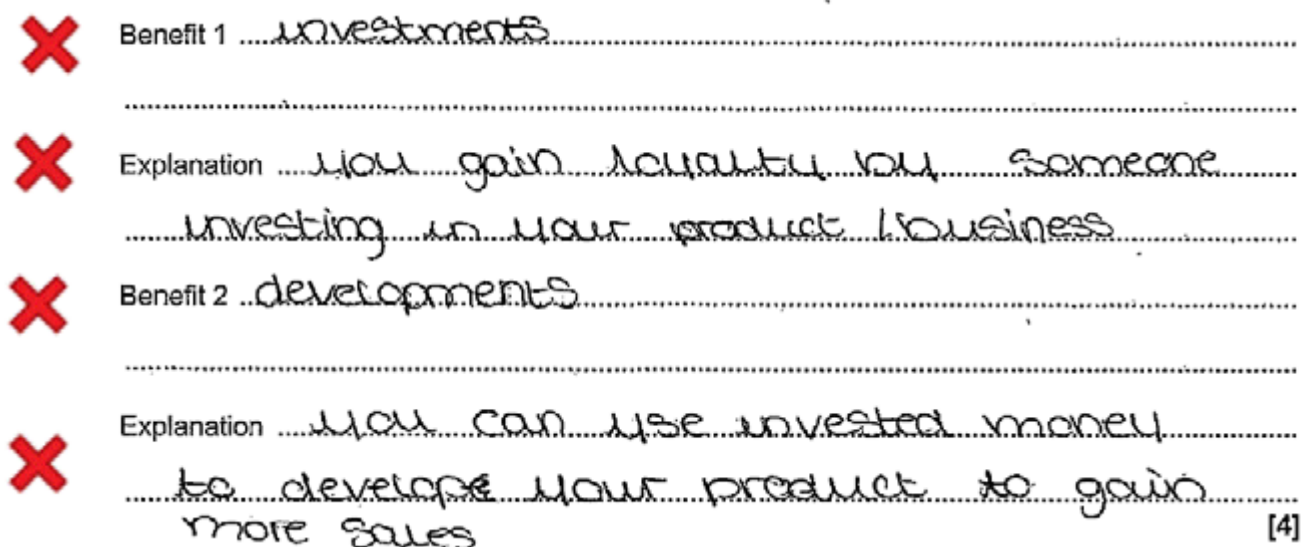 Benefit 1 investments
Explanation you gain loyalty by someone
investing in your product / business
Benefit 2 developments
Explanation you can use invested money
to develope your product to gain
more sales
[4]